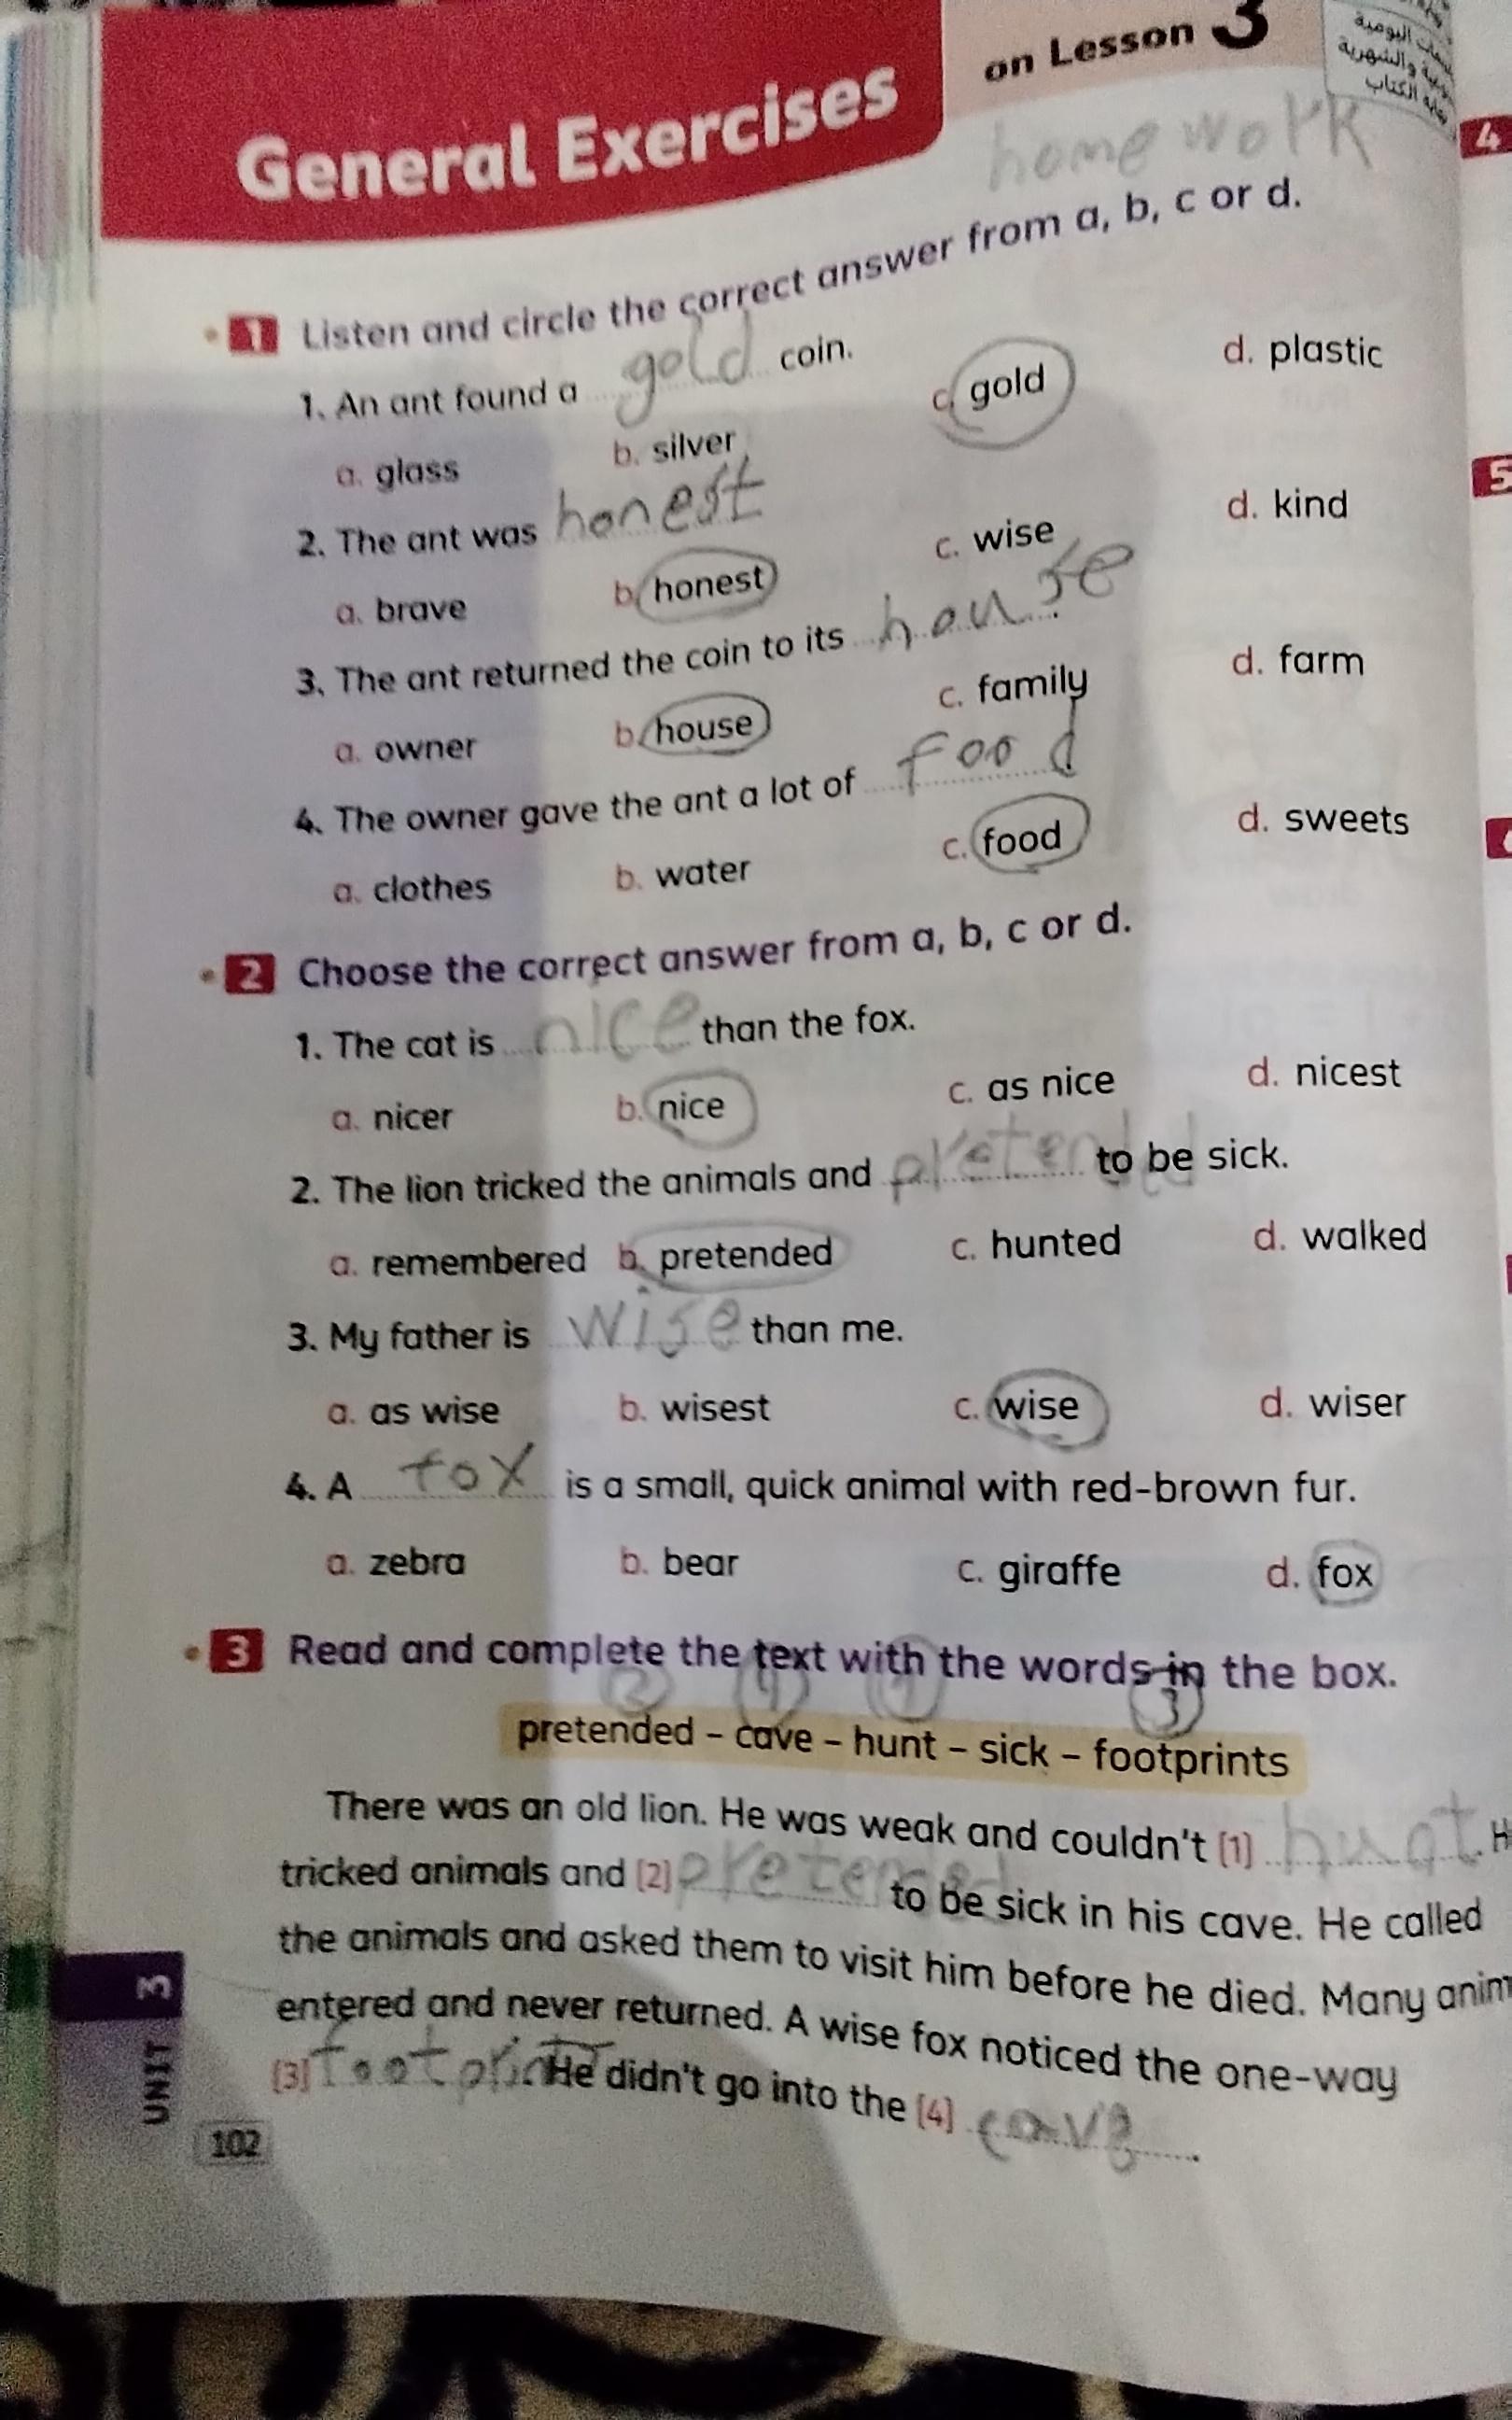 General Exercises
on Lesson 3
homework
4
1 Listen and circle the correct answer from a, b, c or d.
1. An ant found a gold coin.
a. glass b. silver c. gold d. plastic
5
2. The ant was honest
a. brave b. honest c. wise d. kind
3. The ant returned the coin to its house
a. owner b. house c. family d. farm
4. The owner gave the ant a lot of food
a. clothes b. water c. food d. sweets
2 Choose the correct answer from a, b, c or d.
1. The cat is nice than the fox.
a. nicer b. nice c. as nice d. nicest
2. The lion tricked the animals and pretended to be sick.
a. remembered b. pretended c. hunted d. walked
3. My father is wise than me.
a. as wise b. wisest c. wise d. wiser
4. A fox is a small, quick animal with red-brown fur.
a. zebra b. bear c. giraffe d. fox
3 Read and complete the text with the words in the box.
2 4 1 3
pretended – cave – hunt – sick – footprints
There was an old lion. He was weak and couldn't (1) hunt. H
tricked animals and (2) pretended to be sick in his cave. He called
the animals and asked them to visit him before he died. Many anim
entered and never returned. A wise fox noticed the one-way
(3) footprint. He didn't go into the (4) cave.
UNIT 3
102